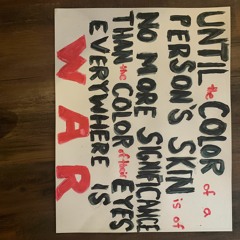 UNTIL the COLOR of a
PERSON'S SKIN is of
NO MORE SIGNIFICANCE
THAN the COLOR of their EYES
EVERYWHERE IS
WAR